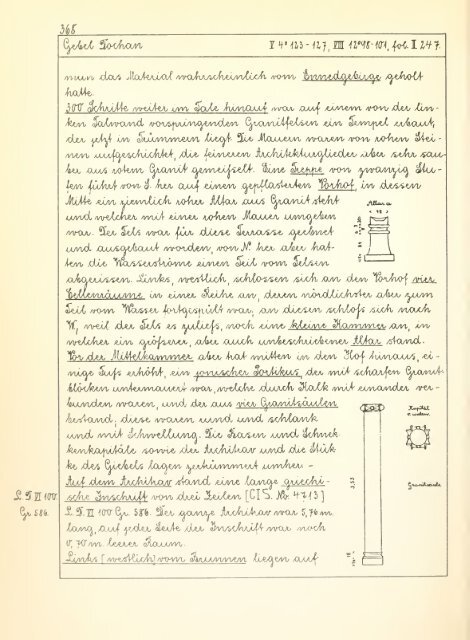 365
Gebel Dochan V 4° 123-127, VIII 12° 98-101, fol. II 247.
nun das Material wahrscheinlich vom Ennedgebirge geholt
hatte.
300 Schritte weiter im Tale hinauf war auf einem von der lin-
ken Talwand vorspringenden Granitfelsen ein Tempel erbaut,
der jetzt in Trümmern liegt. Die Mauern waren von rohen Stei-
nen aufgeschichtet, die feineren Architekturglieder aber sehr sau-
ber aus rotem Granit gemeißelt. Eine Treppe von zwanzig Stu-
fen führt von S. her auf einen gepflasterten Vorhof, in dessen
Mitte ein ziemlich roher Altar aus Granit steht
und welcher mit einer rohen Mauer umgeben
war. Der Fels war für diese Terrasse geebnet
und ausgebaut worden, von N. her aber hat-
ten die Wasserströme einen Teil vom Felsen
abgerissen. Links, westlich, schlossen sich an den Vorhof vier
Cellenräume in einer Reihe an, deren nördlichster aber zum
Teil vom Wasser fortgespült war, an diesen schloß sich nach
W, weil der Fels es zuließ, noch eine kleine Kammer an, in
welcher ein größerer, aber auch unbeschriebener Altar stand.
Vor der Mittelkammer aber hat mitten in den Hof hinaus, ei-
nige Fuß erhöht, ein jonischer Portikus, der mit scharfen Granit-
blöcken untermauert war, welche durch Kalk mit einander ver-
bunden waren, und der aus vier Granitsäulen
bestand; diese waren rund und schlank
und mit Schwellung. Die Basen und Schnek-
kenkapitäle sowie der Architrav und die Stük-
ke des Giebels lagen zertrümmert umher. -
Auf dem Architrav stand eine lange griechi-
sche Inschrift von drei Zeilen [C I S. Nr. 4713]
L. D. VI 100 Gr. 586. Der ganze Architrav war 5,76 m
lang, auf jeder Seite der Inschrift war noch
0,70 m leerer Raum.
Links (westlich) vom Brunnen liegen auf
L. D. VI 100
Gr. 586.
Altar a
Kapitäl
Granitsäule